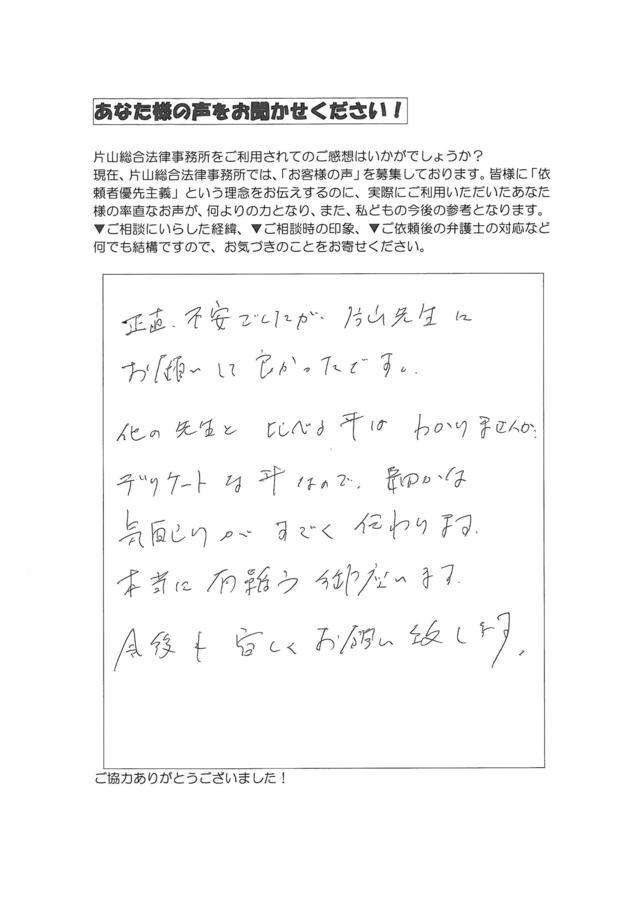 あなた様の声をお聞かせください！
片山総合法律事務所をご利用されてのご感想はいかがでしょうか？
現在、片山総合法律事務所では、「お客様の声」を募集しております。皆様に「依
頼者優先主義」という理念をお伝えするのに、実際にご利用いただいたあなた
様の率直なお声が、何よりの力となり、また、私どもの今後の参考となります。
▼ご相談にいらした経緯、▼ご相談時の印象、▼ご依頼後の弁護士の対応など
何でも結構ですので、お気づきのことをお寄せください。
正直、不安でしたが、片山先生に
お願いして良かったです。
他の先生と比べる事はわかりませんが、
デリケートな事なので、細かな
気配りがすごく伝わります。
本当に有難う御座います。
今後も宜しくお願い致します。
ご協力ありがとうございました！